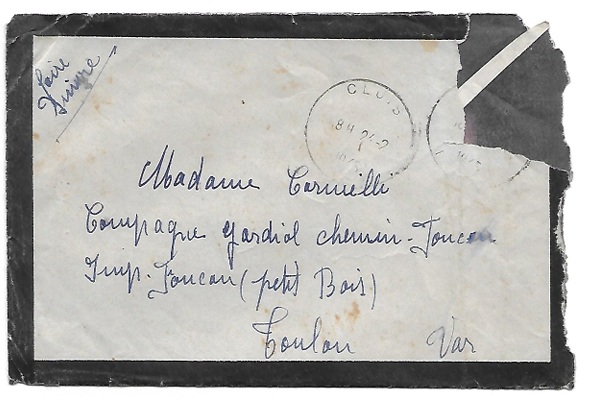 faire
suivre
CLUIS
8H 24-2
Madame Cormelli
Campagne gardiol chemin-Foucou
Imp. Foucou (petit Bois)
Toulon Var